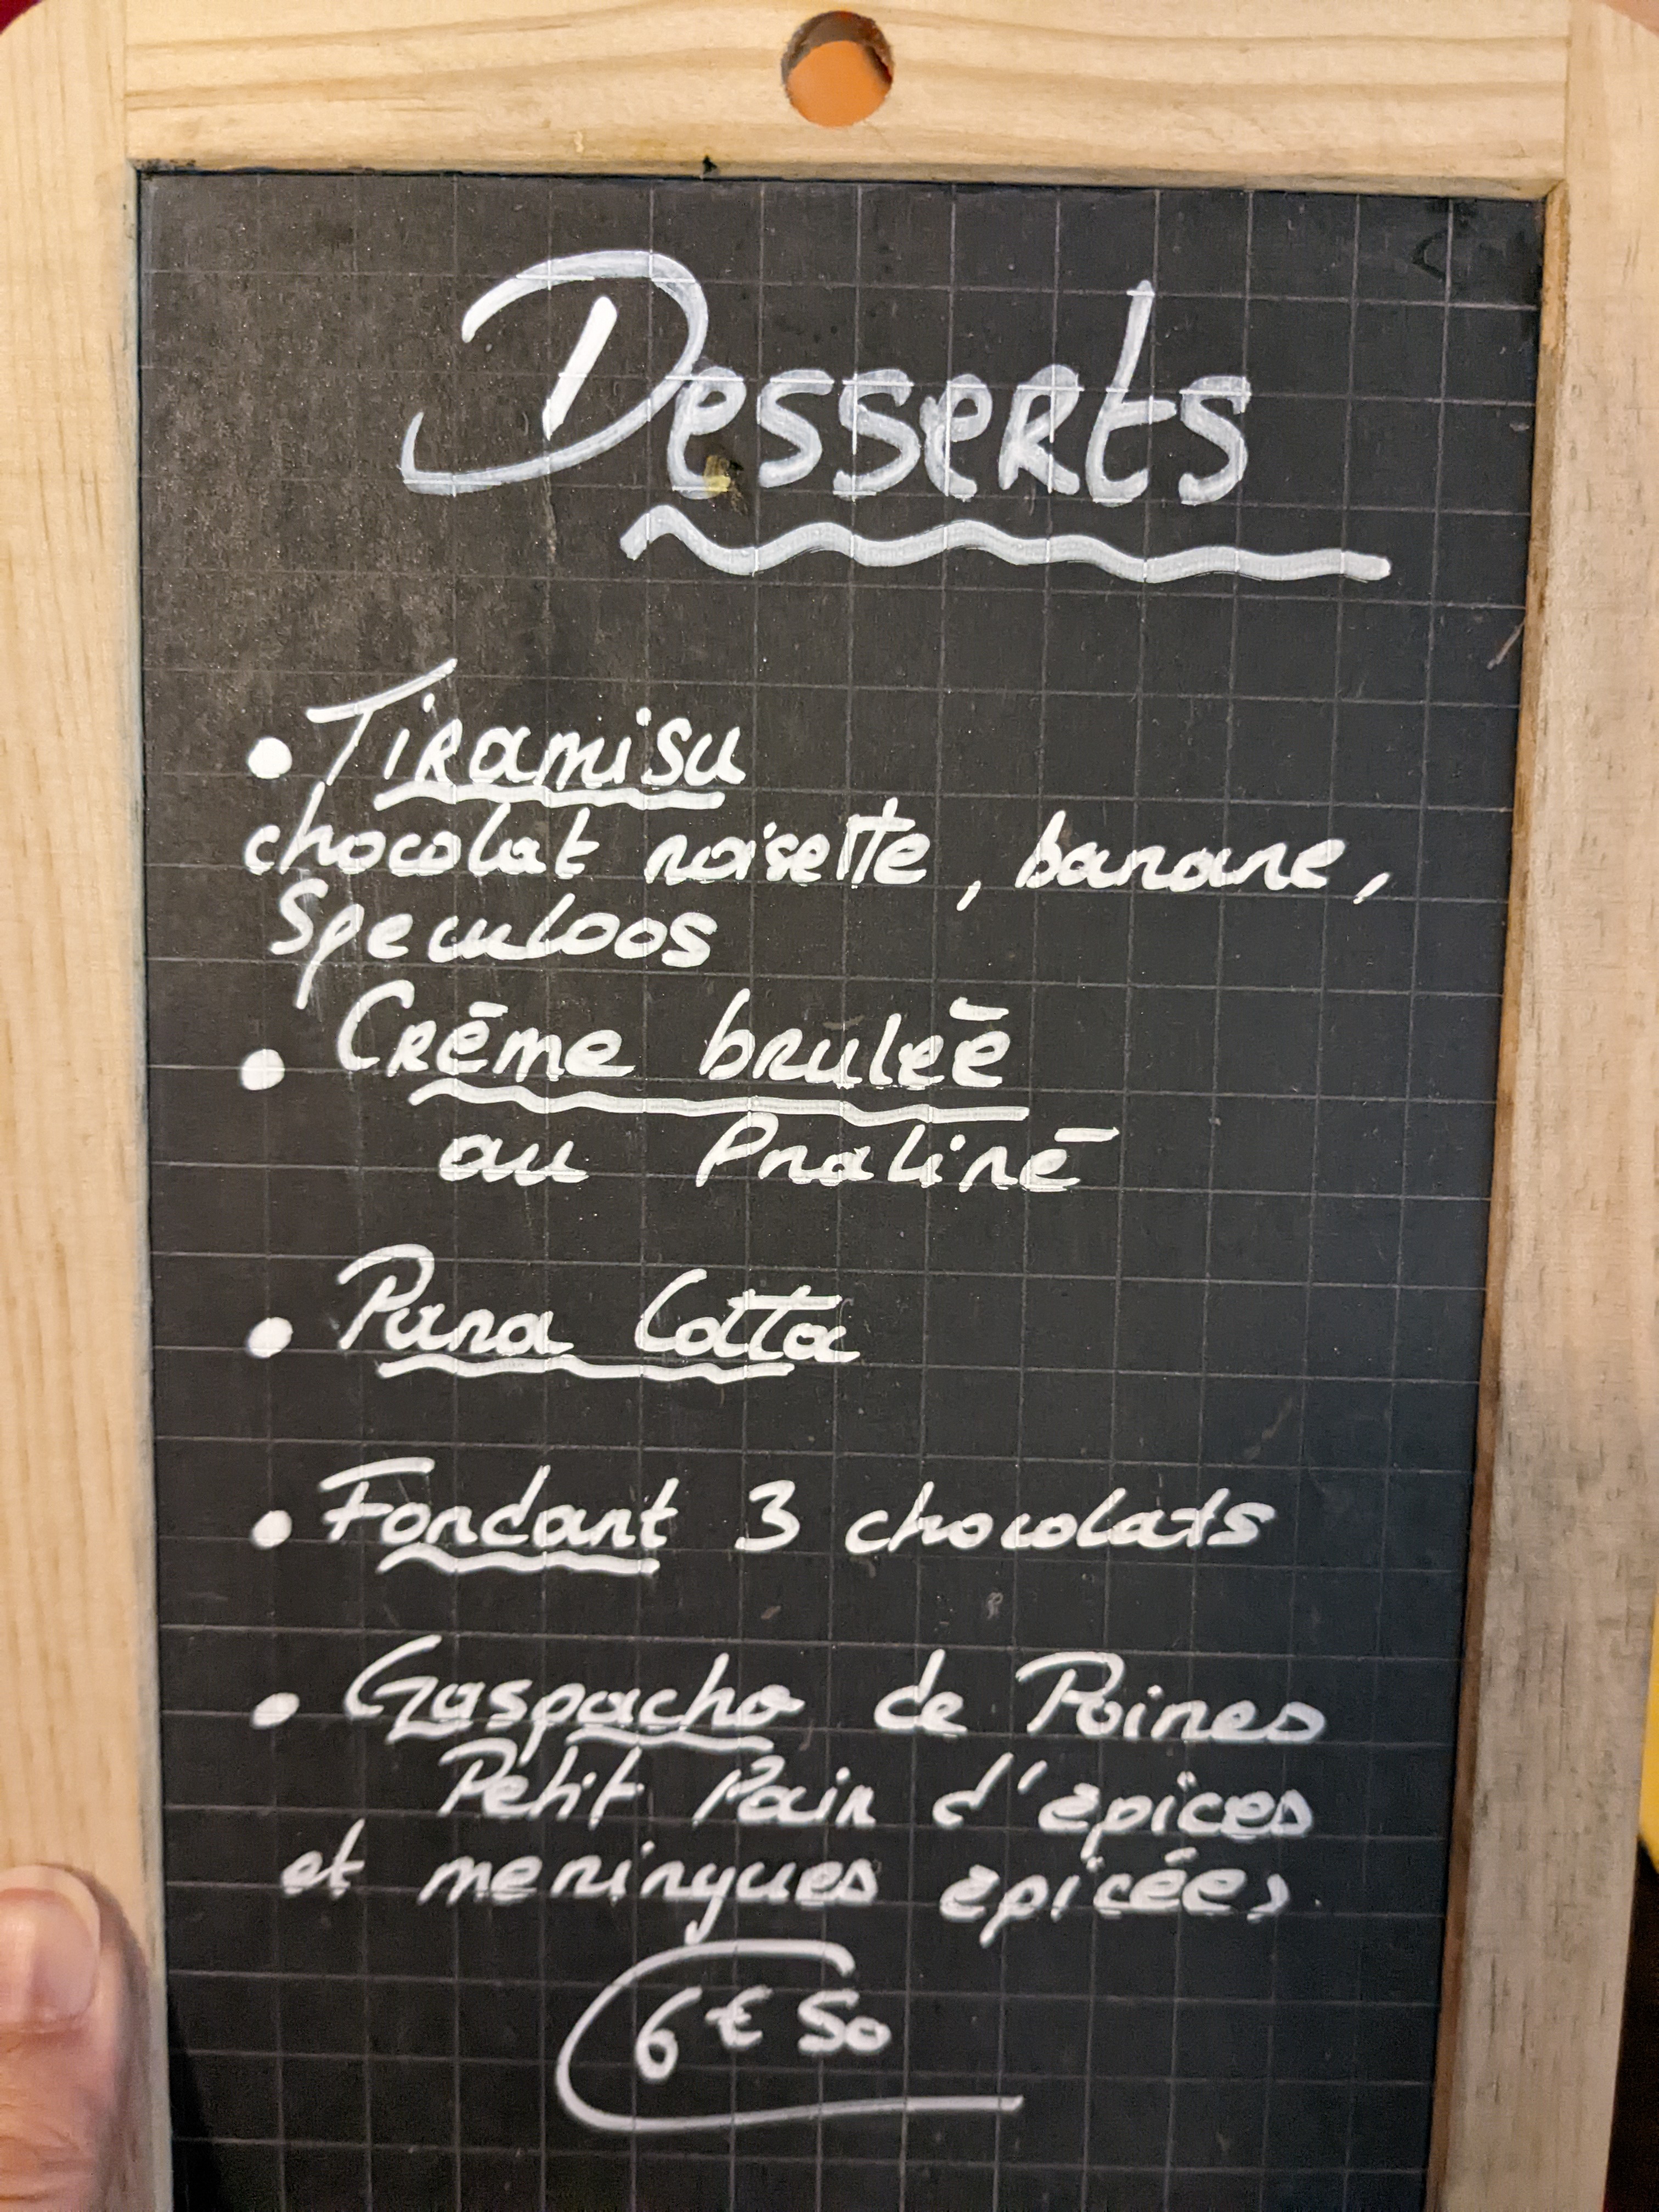 Desserts
• Tiramisu
chocolat noisette, banane,
Speculoos
• Crème bruleè
au Praliné
• Pana Cotta
• Fondant 3 chocolats
• Gaspacho de Poires
Petit Pain d'épices
et meringues épicées
6 € 50